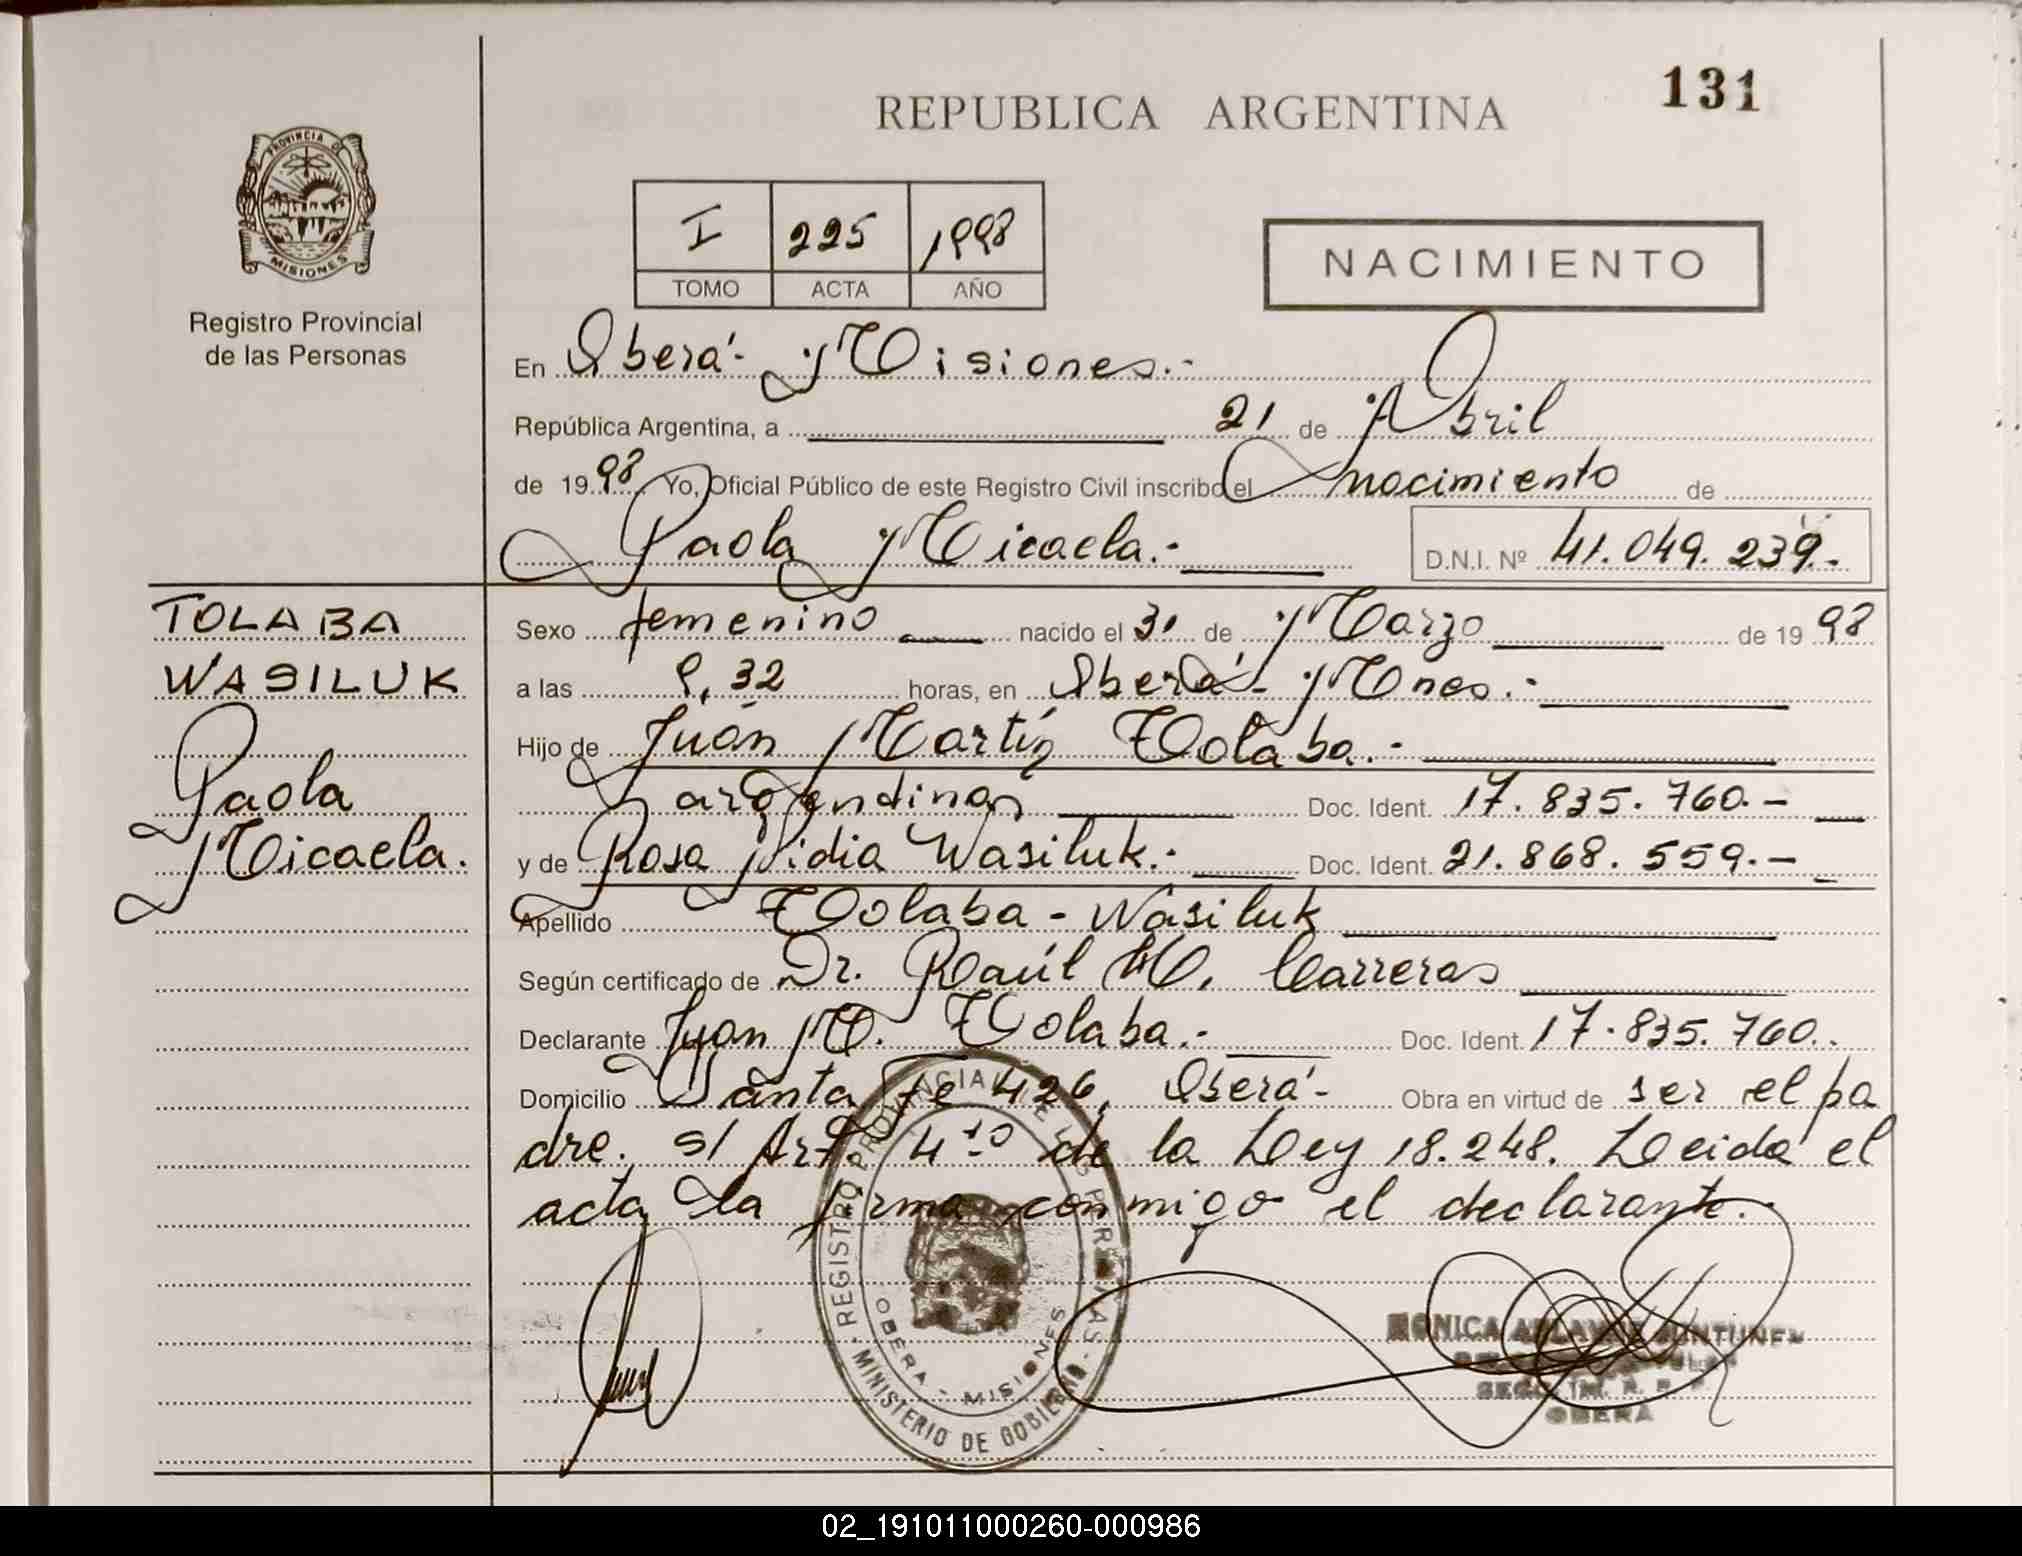 131
REPUBLICA ARGENTINA
PROVINCIA DE
MISIONES
Registro Provincial
de las Personas
I 225 1998
TOMO ACTA AÑO
NACIMIENTO
En Oberá - Misiones.-
República Argentina, a 21 de Abril
de 1998 Yo, Oficial Público de este Registro Civil inscribo el nacimiento de
Paola Micaela.- D.N.I. Nº 41.049.239.-
TOLABA
WASILUK
Paola
Micaela.
Sexo femenino nacido el 31 de Marzo de 1998
a las 9,32 horas, en Oberá - Mnes.-
Hijo de Juan Martín Tolaba.-
argentinos Doc. Ident. 17.835.760.-
y de Rosa Nidia Wasiluk.- Doc. Ident. 21.868.559.-
Apellido Tolaba - Wasiluk
Según certificado de Dr. Raúl H. Carreras
Declarante Juan M. Tolaba.- Doc. Ident. 17.835.760.
Domicilio Santa Fe 426, Oberá - Obra en virtud de ser el pa
dre. s/ Art. 4to de la Ley 18.248. Leida el
acta la firma conmigo el declarante.-
REGISTRO PROVINCIAL DE LAS PERSONAS - MINISTERIO DE GOBIERNO
OBERA - MISIONES
MONICA
OBERA
02_191011000260-000986